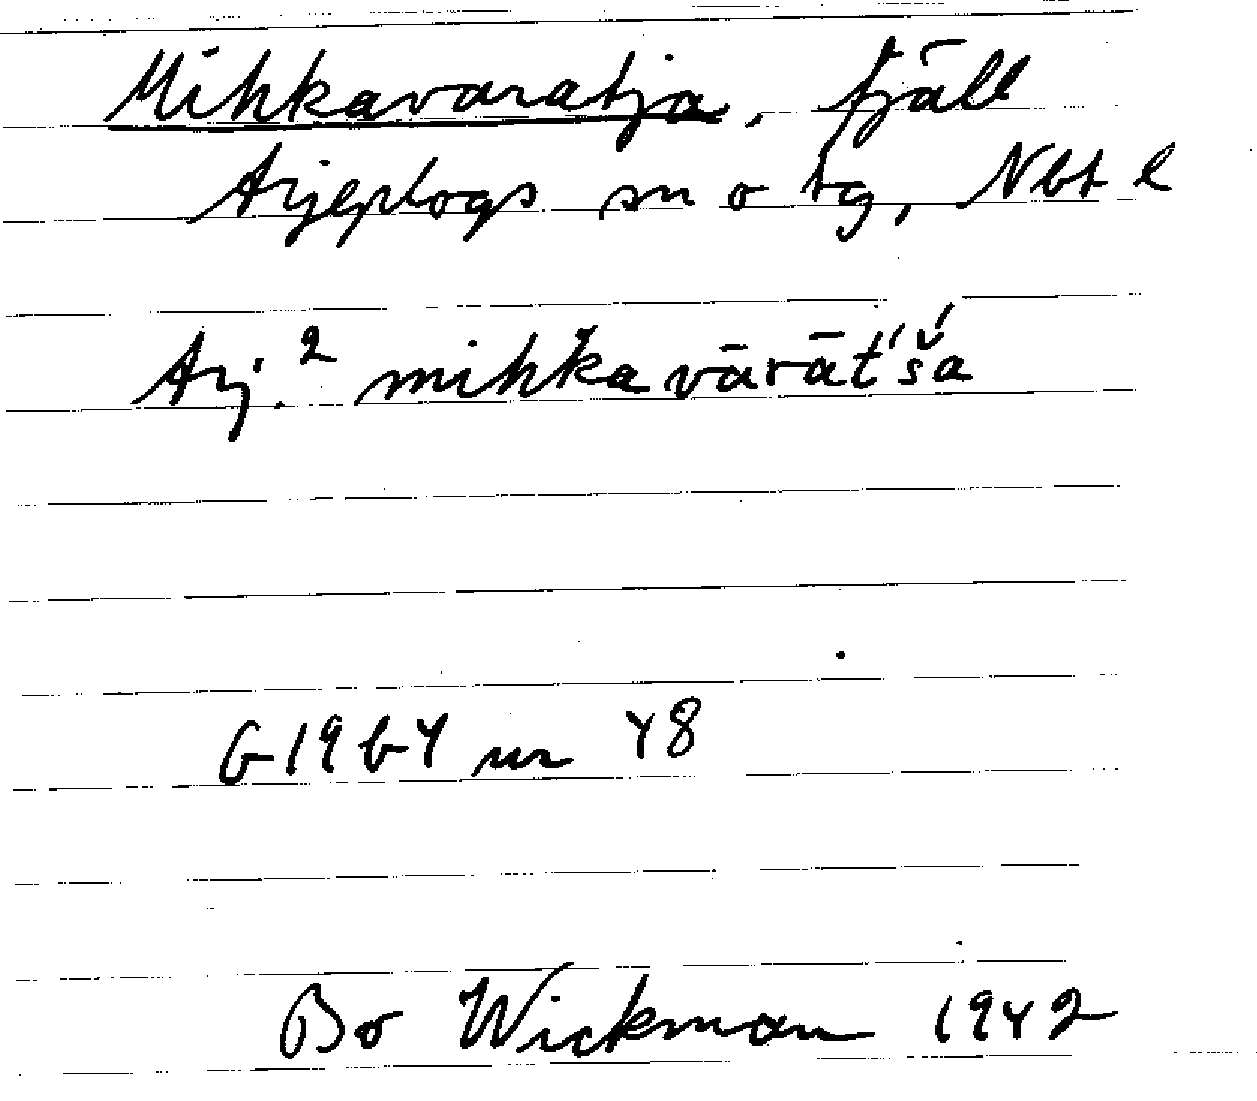 Mihkavaratja, fjäll
Arjeplogs sn o tg, Nbt l
Arj.² mihk̆a vārāt́'š́a
G1964 nr 48
Bo Wickman 1942